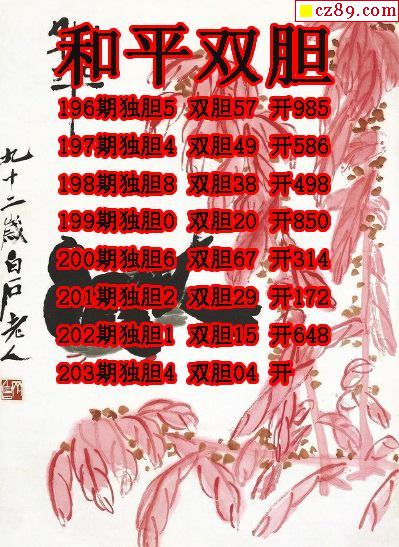 cz89.com
和平双胆
196期独胆5 双胆57 开985
197期独胆4 双胆49 开586
198期独胆8 双胆38 开498
199期独胆0 双胆20 开850
200期独胆6 双胆67 开314
201期独胆2 双胆29 开172
202期独胆1 双胆15 开648
203期独胆4 双胆04 开
九十二岁白石老人